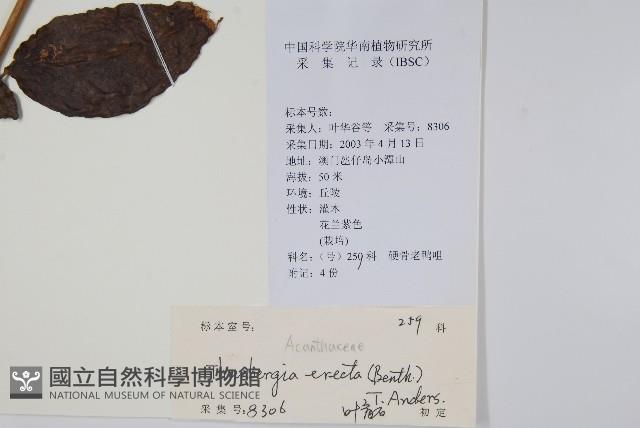 中国科学院华南植物研究所
采 集 记 录（IBSC）
标本号数：
采集人：叶华谷等 采集号：8306
采集日期：2003 年 4 月 13 日
地址：澳门氹仔岛小潭山
海拔：50 米
环境：丘陵
性状：灌木
花兰紫色
(栽培)
科名：（号）259科 硬骨老鸭咀
附记：4 份
标本室号： 259 科
Acanthaceae
Thunbergia erecta (Benth.)
T. Anders.
采 集 号：8306 初 定
國立自然科學博物館
NATIONAL MUSEUM OF NATURAL SCIENCE